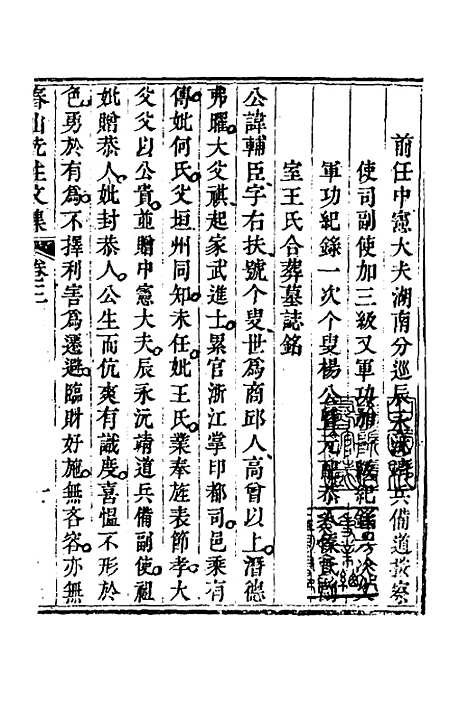 前任中憲大夫湖南分巡辰永沅靖兵備道按察
使司副使加三級又軍功加
軍功紀錄一次个叟楊公
室王氏合葬墓誌銘
公諱輔臣字右扶號个叟世為商邱人高曾以上潛德
弗曜大父祺起家武進士累官浙江掌印都司邑乘有
傳妣何氏父垣州同知未任妣王氏業奉旌表節孝大
父父以公貴並贈中憲大夫辰永沅靖道兵備副使祖
妣贈恭人妣封恭人公生而伉爽有識度喜慍不形於
色勇於有為不擇利害為遷避臨財好施無吝容亦無
春山先生文集 卷三